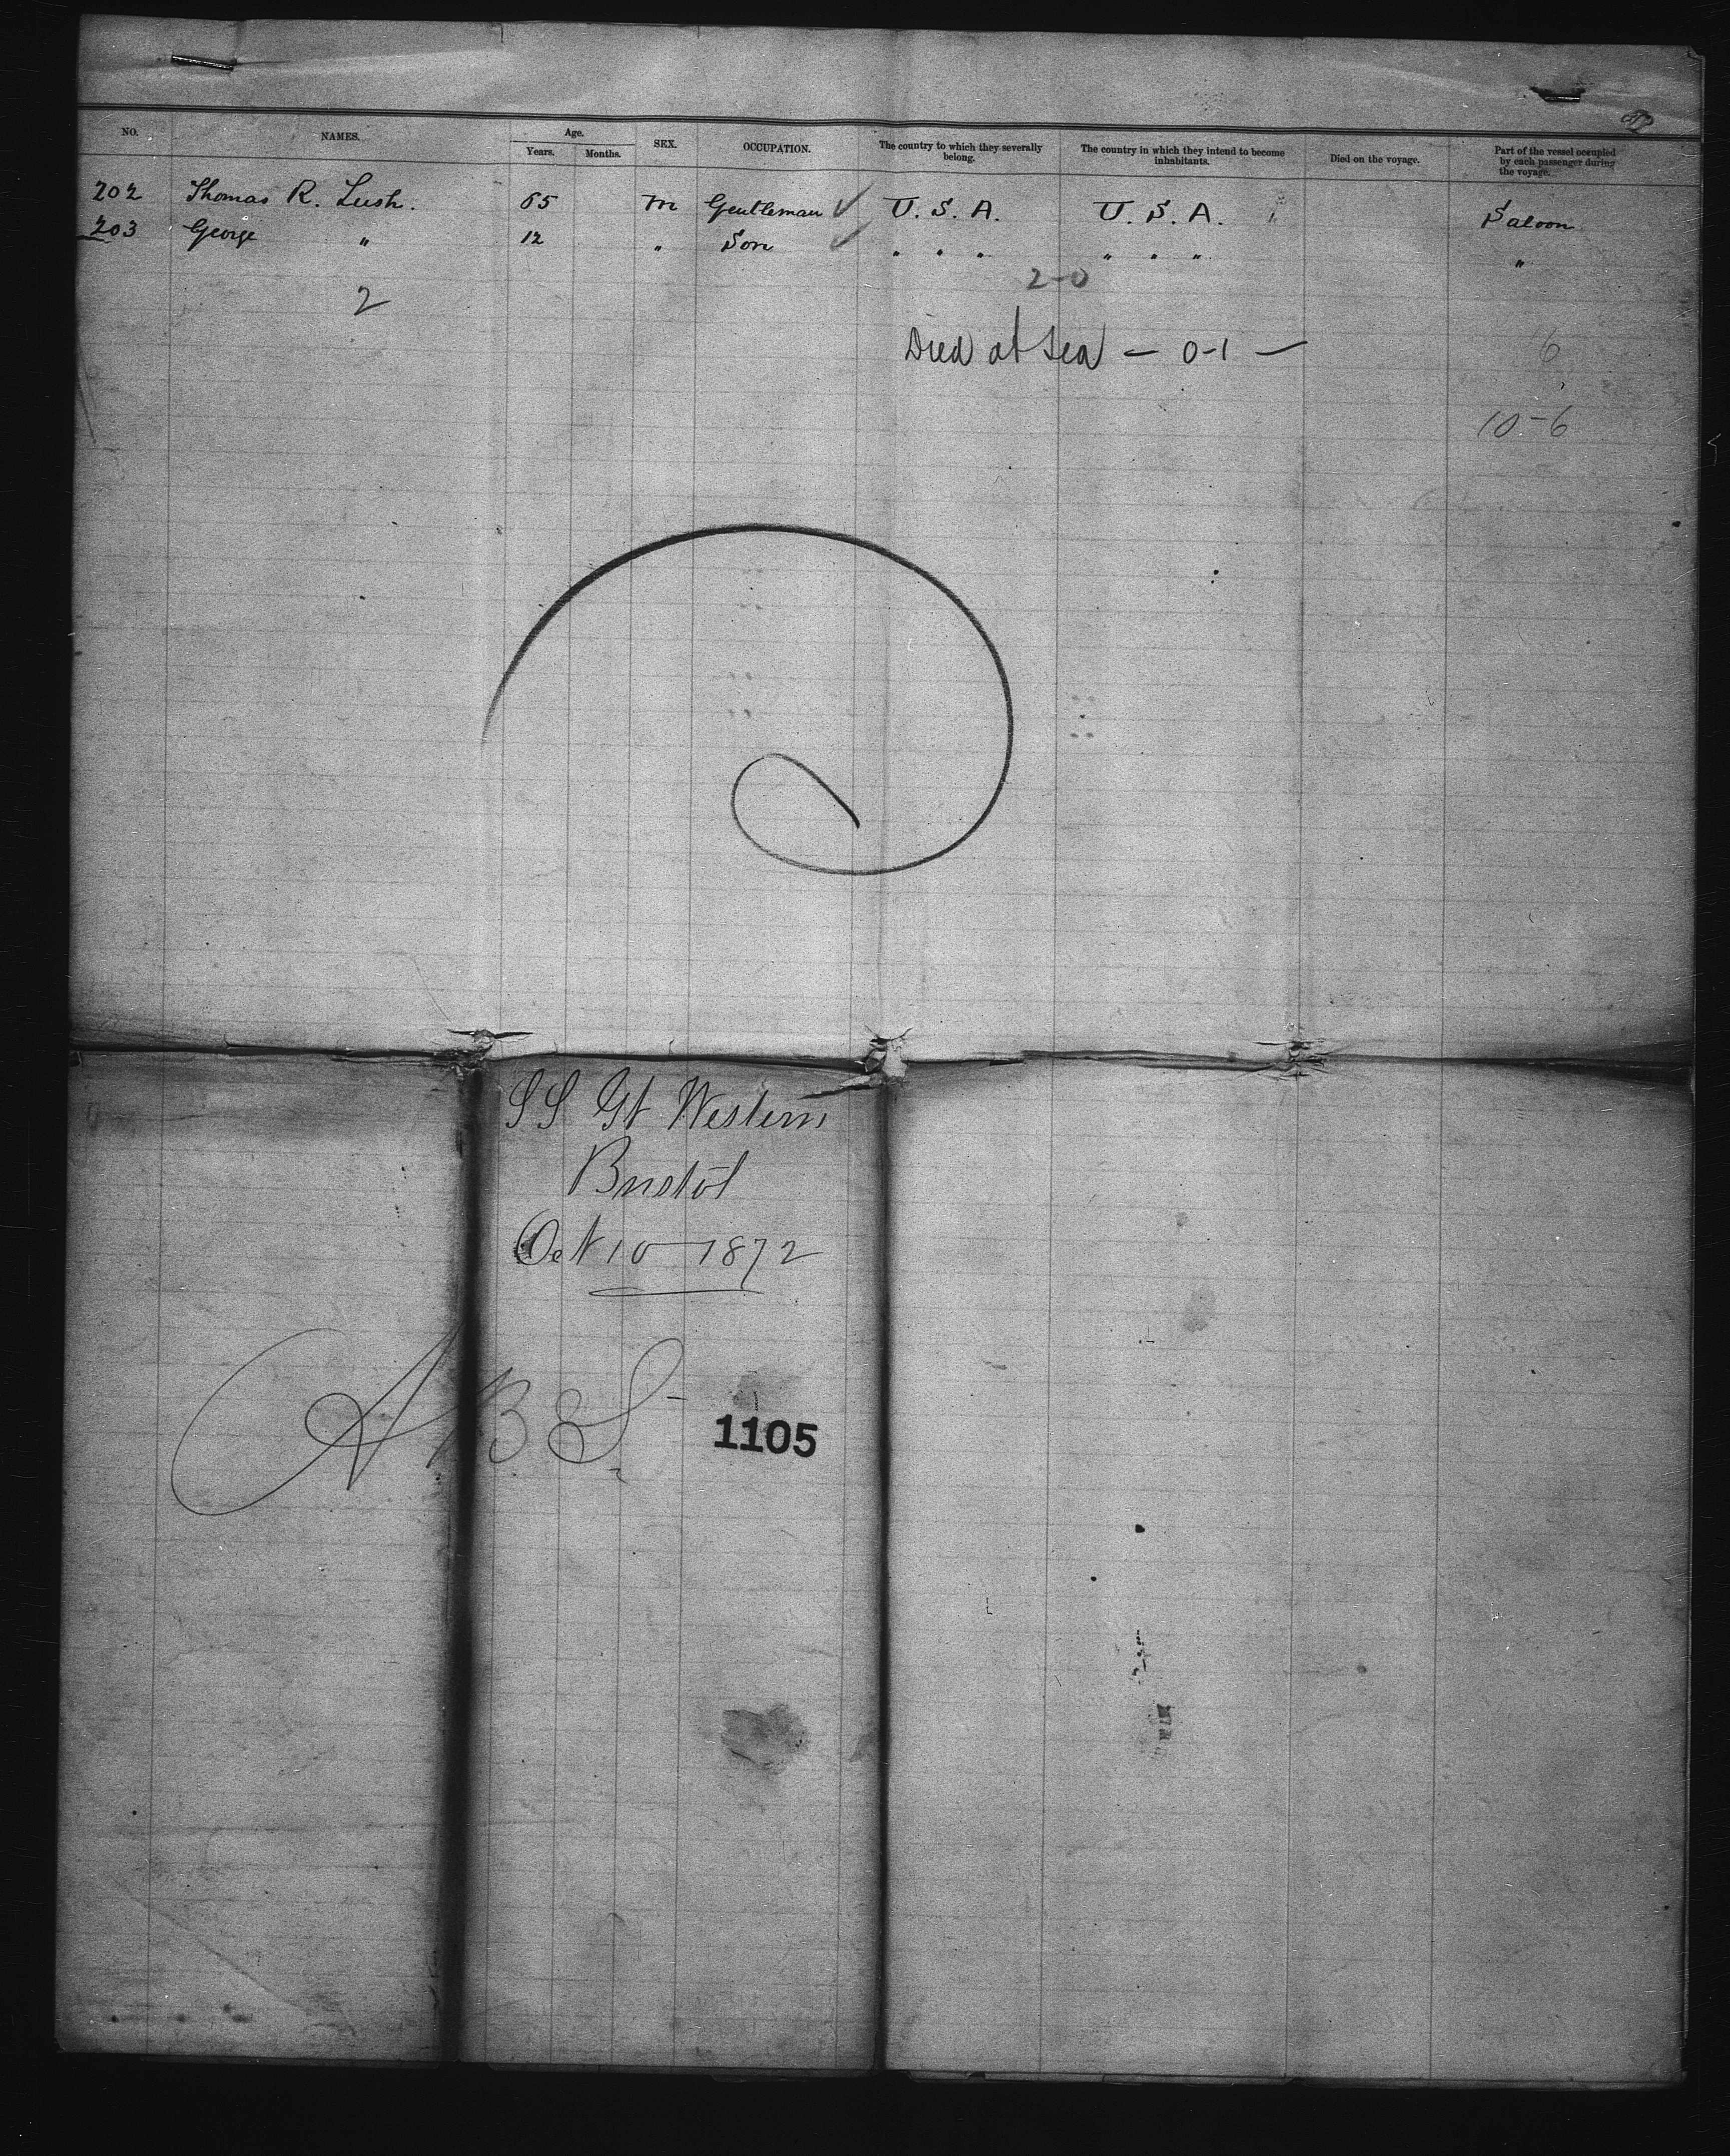 NO. NAMES. Age. Years. Months. SEX. OCCUPATION. The country to which they severally belong. The country in which they intend to become inhabitants. Died on the voyage. Part of the vessel occupied by each passenger during the voyage.
202 Thomas R. Lush. 65 m Gentleman ✓ U. S. A. U. S. A. Saloon
203 George " 12 " Son ✓ " " " " " " "
2-0
2
Died at Sea — 0-1 —
6
10-6
SS Gt Western
Bristol
Oct 10 1872
1105